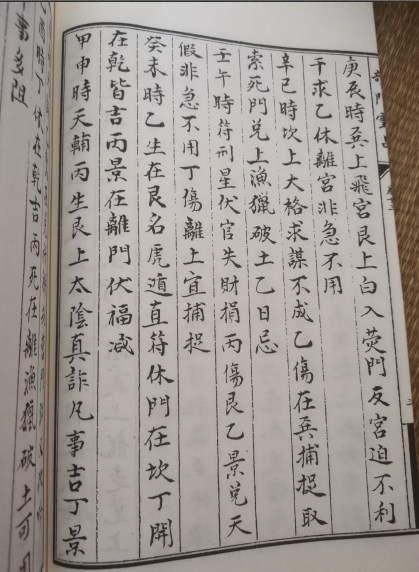 庚辰時兵上飛宮艮上白入熒門反宮迫不利
干求乙休離宮非急不用
辛巳時坎上大格求謀不成乙傷在兵捕捉取
索死門兑上漁獵破土乙日忌
壬午時符刑星伏官失財損丙傷艮乙景兑天
假非急不用丁傷離上宜捕捉
癸未時乙生在艮名虎遁直符休門在坎丁開
在乾皆吉丙景在離門伏福减
甲申時天輔丙生艮上太陰真詐凡事吉丁景
酉時丁休在乾吉丙死在離漁獵破土可
事多阻